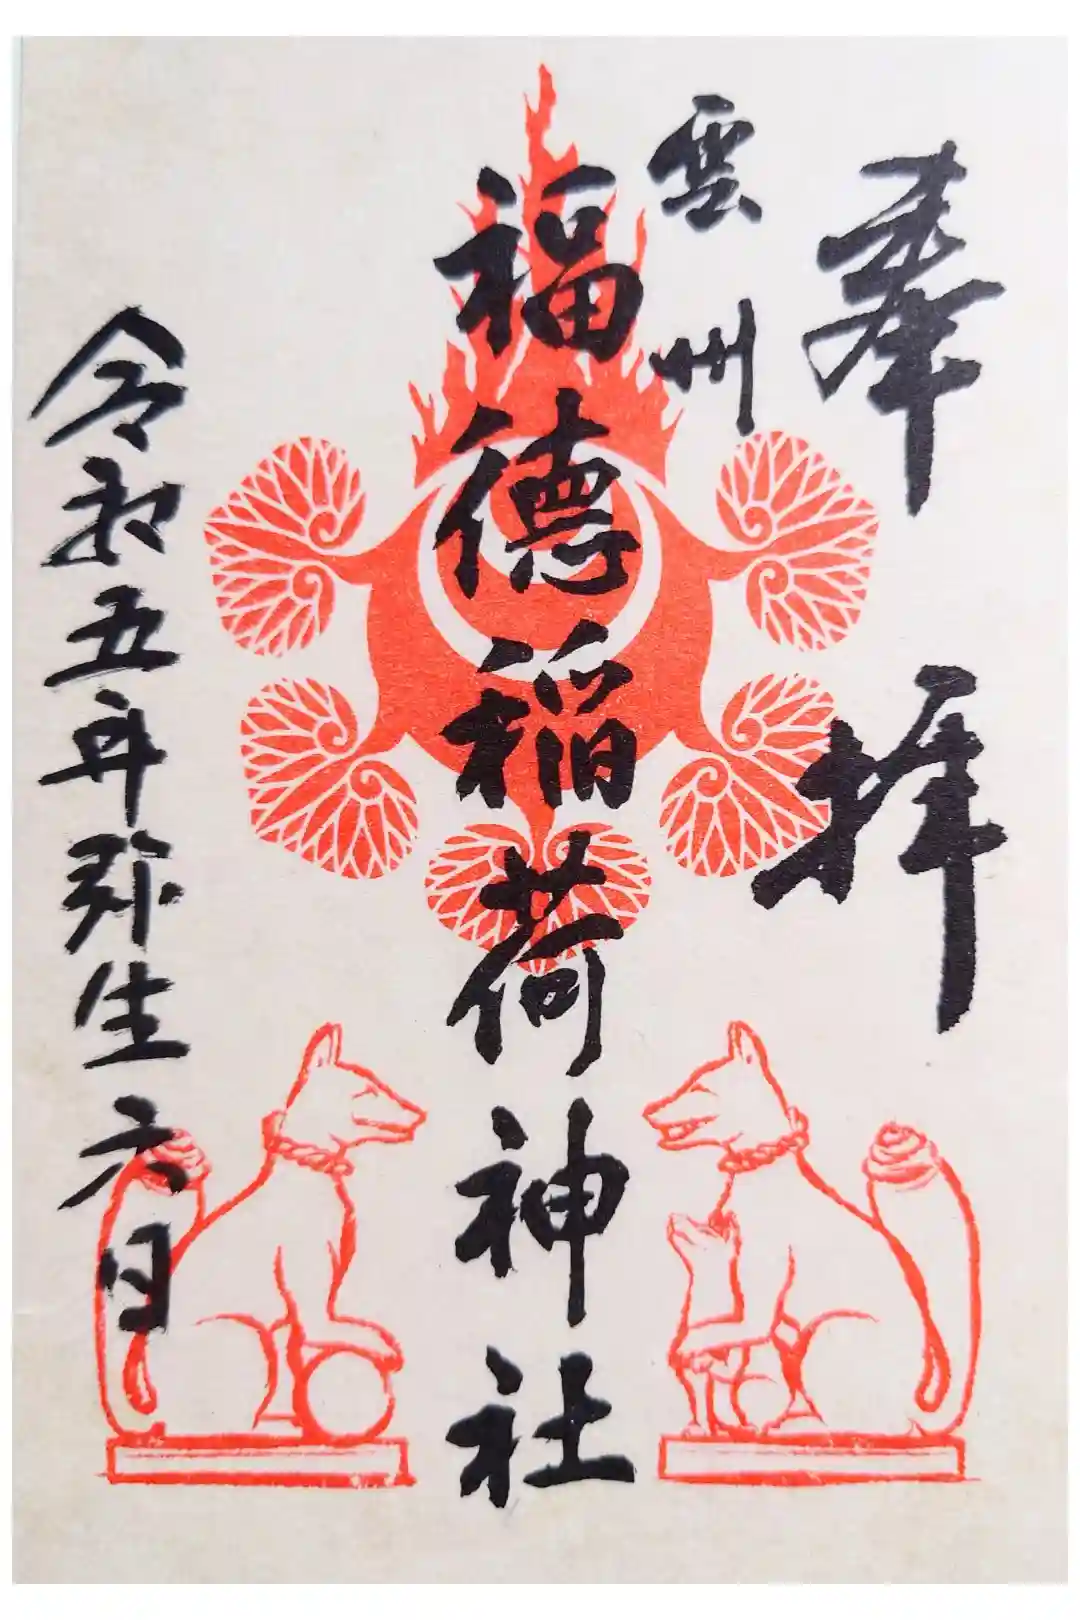 奉拝
雲州
福德稲荷神社
令和五年弥生六日